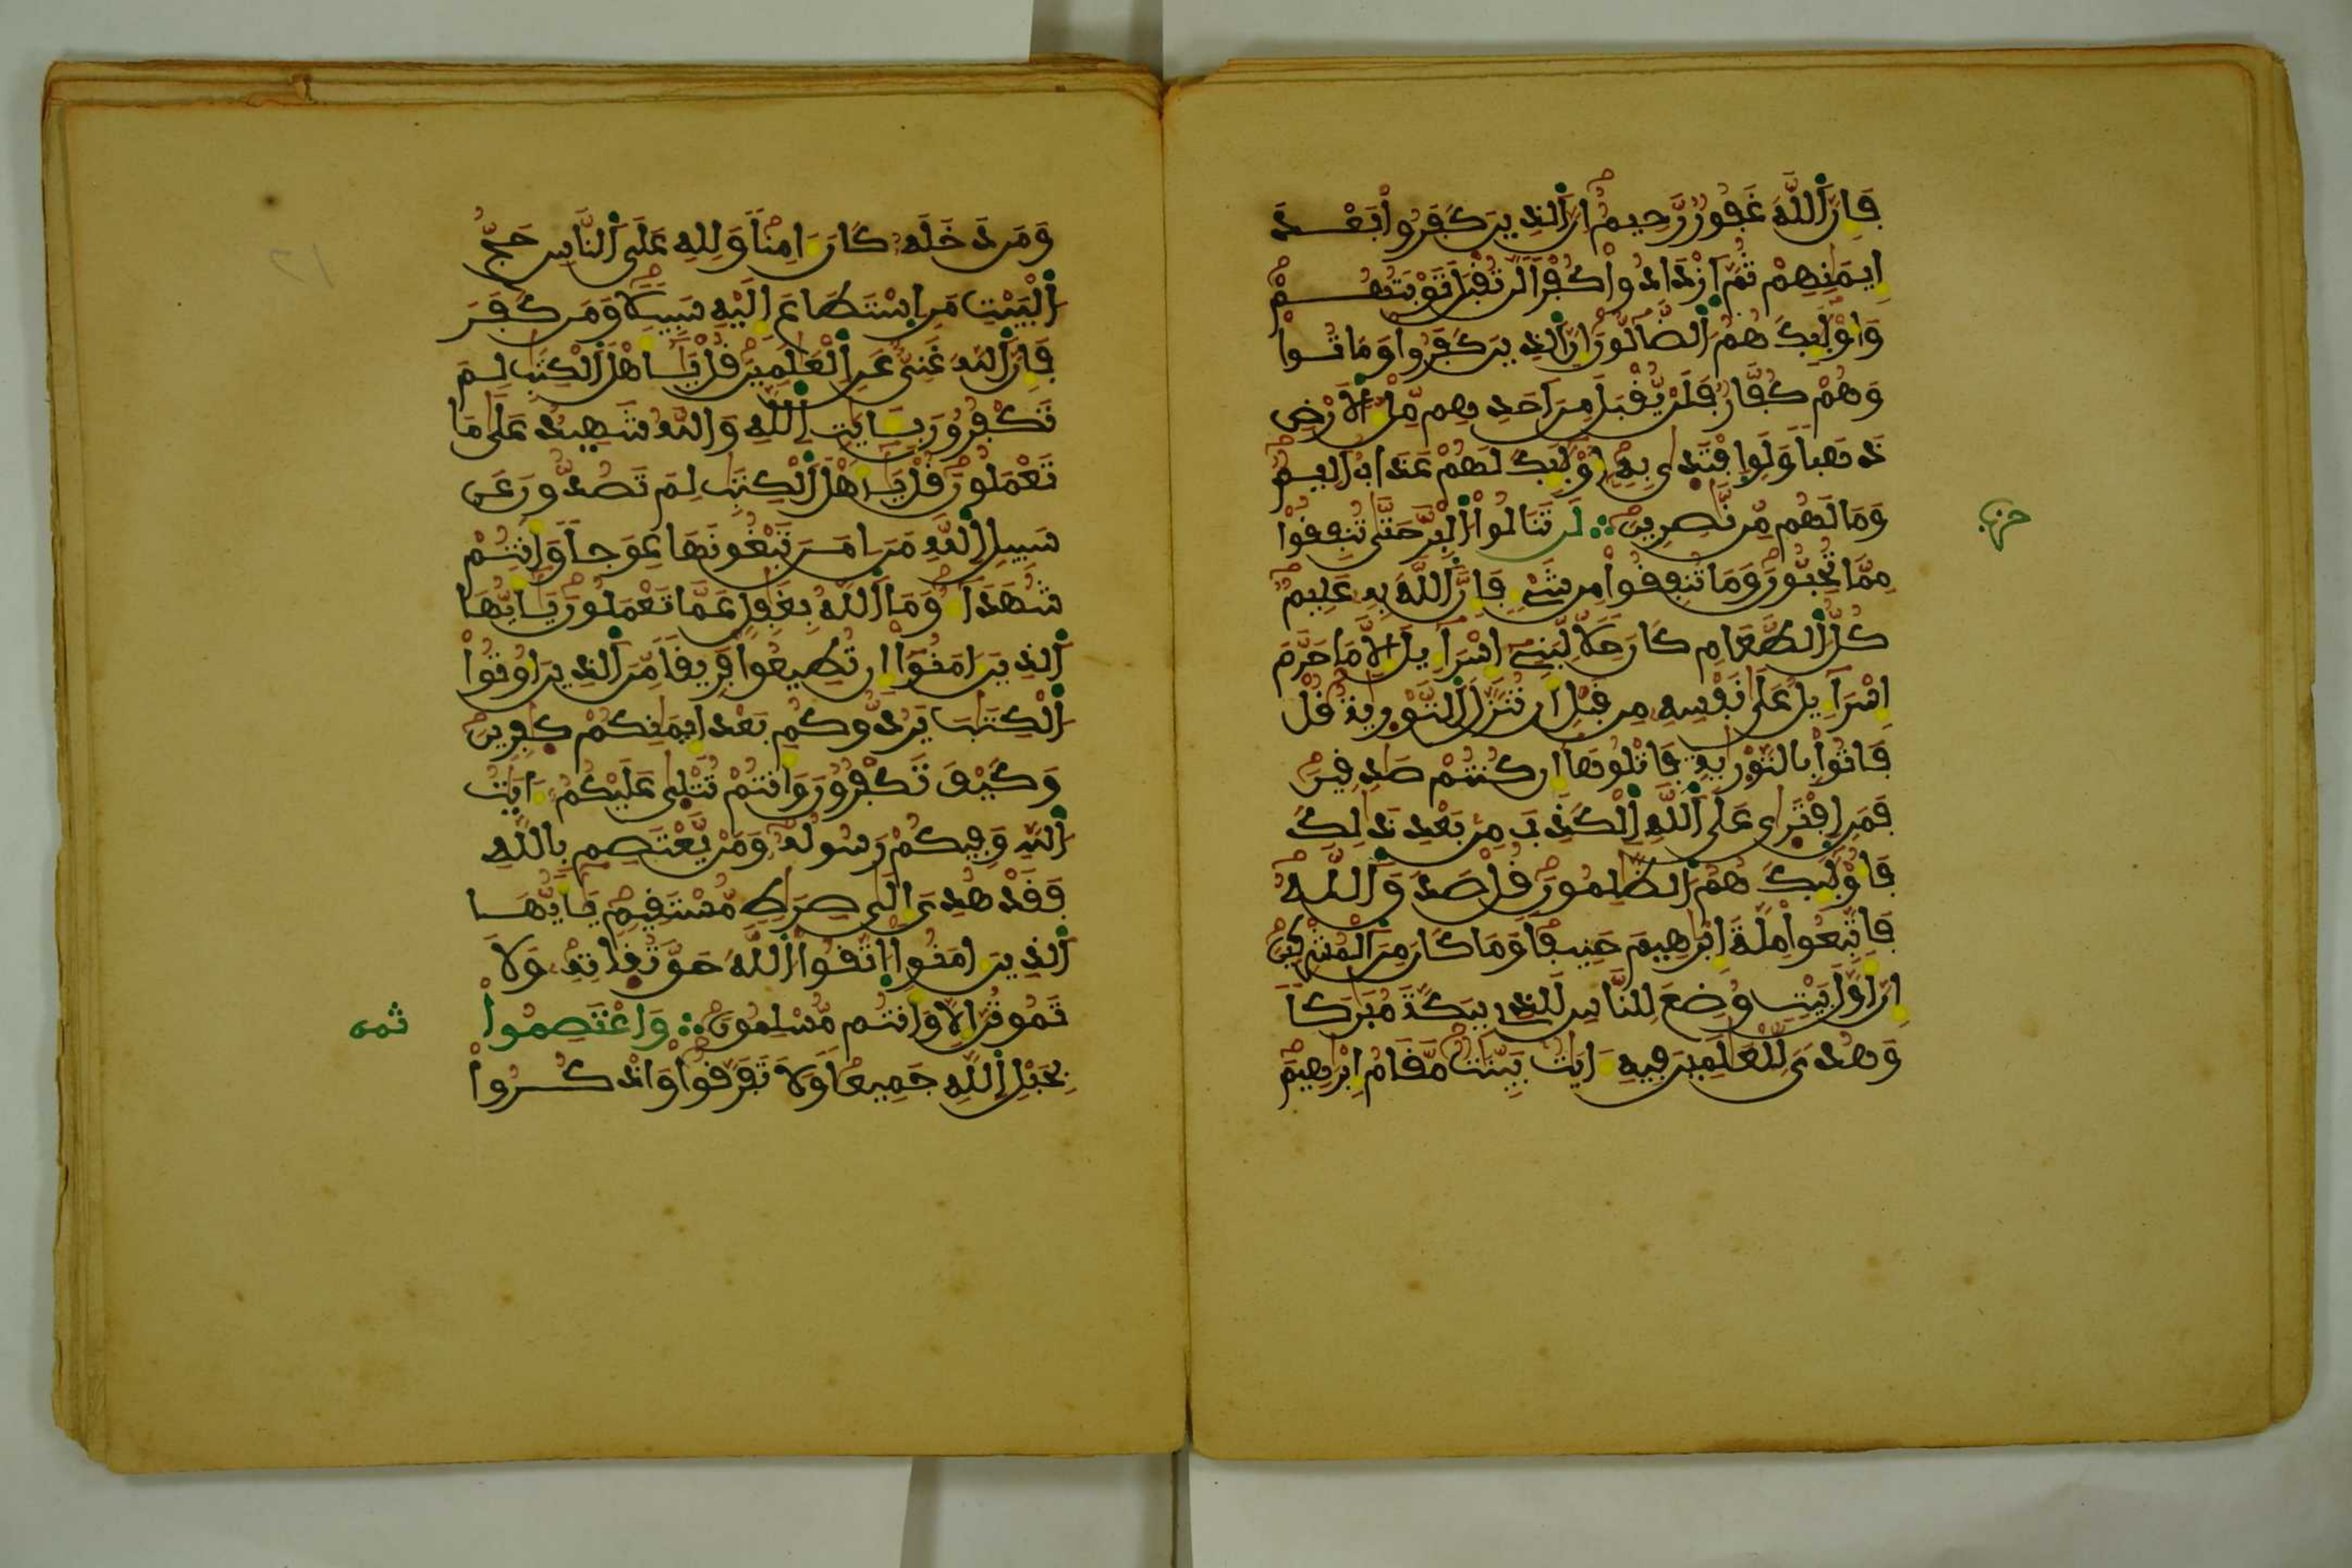 فَإِنَّ اَللَّهَ غَفُورٌ رَّحِيمٌ اِنَّ اَلذِينَ كَفَرُواْ بَعْدَ
إِيمَٰنِهِمْ ثُمَّ اَزْدَادُواْ كُفْراً لَّن تُقْبَلَ تَوْبَتُهُمْ
وَأُوْلَٰئِكَ هُمُ اَلضَّالُّونَ إِنَّ اَلذِينَ كَفَرُواْ وَمَاتُواْ
وَهُمْ كُفَّارٌ فَلَنْ يُّقْبَلَ مِنَ اَحَدِهِم مِّلْءُ اُلَارْضِ
ذَهَباً وَلَوِ اِفْتَدَىٰ بِهِ أُوْلَٰئِكَ لَهُمْ عَذَابٌ اَلِيمٌ
وَمَا لَهُم مِّن نَّٰصِرِينَ لَن تَنَالُواْ اُلْبِرَّ حَتَّىٰ تُنفِقُواْ
حزب
مِمَّا تُحِبُّونَ وَمَا تُنفِقُواْ مِن شَےْءٍ فَإِنَّ اَللَّهَ بِهِ عَلِيمٌ
كُلُّ اُلطَّعَامِ كَانَ حِلّاً لِّبَنِے إِسْرَآءِيلَ إِلَّا مَا حَرَّمَ
إِسْرَآءِيلُ عَلَىٰ نَفْسِهِ مِن قَبْلِ أَن تُنَزَّلَ اَلتَّوْرَىٰةُ قُلْ
فَاتُواْ بِالتَّوْرَىٰةِ فَاتْلُوهَا إِن كُنتُمْ صَٰدِقِينَ
فَمَنِ اِفْتَرَىٰ عَلَى اَللَّهِ اِلْكَذِبَ مِنۢ بَعْدِ ذَٰلِكَ
فَأُوْلَٰئِكَ هُمُ اُلظَّٰلِمُونَ قُلْ صَدَقَ اَللَّهُ
فَاتَّبِعُواْ مِلَّةَ إِبْرَٰهِيمَ حَنِيفاً وَمَا كَانَ مِنَ اَلْمُشْرِكِينَ
إِنَّ أَوَّلَ بَيْتٍ وُضِعَ لِلنَّاسِ لَلذِے بِبَكَّةَ مُبَٰرَكاً
وَهُدىً لِّلْعَٰلَمِينَ فِيهِ ءَايَٰتٌۢ بَيِّنَٰتٌ مَّقَامُ إِبْرَٰهِيمَ
وَمَن دَخَلَهُ كَانَ ءَامِناً وَلِلهِ عَلَى اَلنَّاسِ حَجُّ
اُلْبَيْتِ مَنِ اِسْتَطَاعَ إِلَيْهِ سَبِيلًا وَمَن كَفَرَ
فَإِنَّ اَللَّهَ غَنِيٌّ عَنِ اِلْعَٰلَمِينَ قُلْ يَٰأَهْلَ اَلْكِتَٰبِ لِمَ
تَكْفُرُونَ بِـَٔايَٰتِ اِللَّهِ وَاللَّهُ شَهِيدٌ عَلَىٰ مَا
تَعْمَلُونَ قُلْ يَٰأَهْلَ اَلْكِتَٰبِ لِمَ تَصُدُّونَ عَن
سَبِيلِ اِللَّهِ مَنَ اٰمَنَ تَبْغُونَهَا عِوَجاً وَأَنتُمْ
شُهَدَآءُ وَمَا اَللَّهُ بِغَٰفِلٍ عَمَّا تَعْمَلُونَ يَٰأَيُّهَا
اَلذِينَ ءَامَنُواْ إِن تُطِيعُواْ فَرِيقاً مِّنَ اَلذِينَ أُوتُواْ
اُلْكِتَٰبَ يَرُدُّوكُم بَعْدَ إِيمَٰنِكُمْ كَٰفِرِينَ
وَكَيْفَ تَكْفُرُونَ وَأَنتُمْ تُتْلَىٰ عَلَيْكُمُ ءَايَٰتُ
اُللَّهِ وَفِيكُمْ رَسُولُهُ وَمَنْ يَّعْتَصِم بِاللَّهِ
فَقَدْ هُدِيَ إِلَىٰ صِرَٰطٍ مُّسْتَقِيمٍ يَٰأَيُّهَا
اَلذِينَ ءَامَنُواْ اُتَّقُواْ اُللَّهَ حَقَّ تُقَاتِهِ وَلَا
تَمُوتُنَّ إِلَّا وَأَنتُم مُّسْلِمُونَ وَاعْتَصِمُواْ
ثمن
بِحَبْلِ اِللَّهِ جَمِيعاً وَلَا تَفَرَّقُواْ وَاذْكُرُواْ